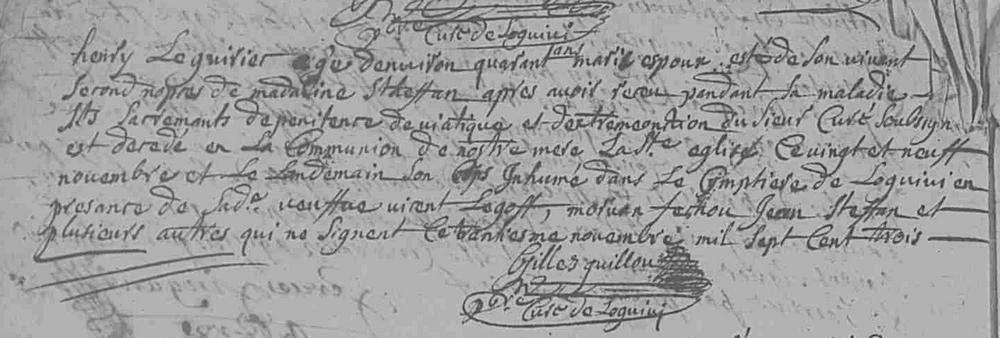 pbre Curé de Loquivi
henry Le quirier agé denviron quarant ans mary espoux esté de son vivant
second nopces de madaleine Steffan apres avoir receu pandant sa maladie
les sacrements de penitence de viatique et dextremeonction du sieur Curé soubsign
est decedé en La Communion de nostre mere La Ste eglise Ce vingt et neuff
novembre et Le Landemain son Cors Inhumé dans Le Cymptiere de Loquivi en
presance de Lade veuffve vicent Legoff, morvan fechou Jean Steffan et
plusieurs autres qui ne signent Ce trantiesme novembre mil sept Cent trois
Gilles quillou
pbre Curé de Loquivi